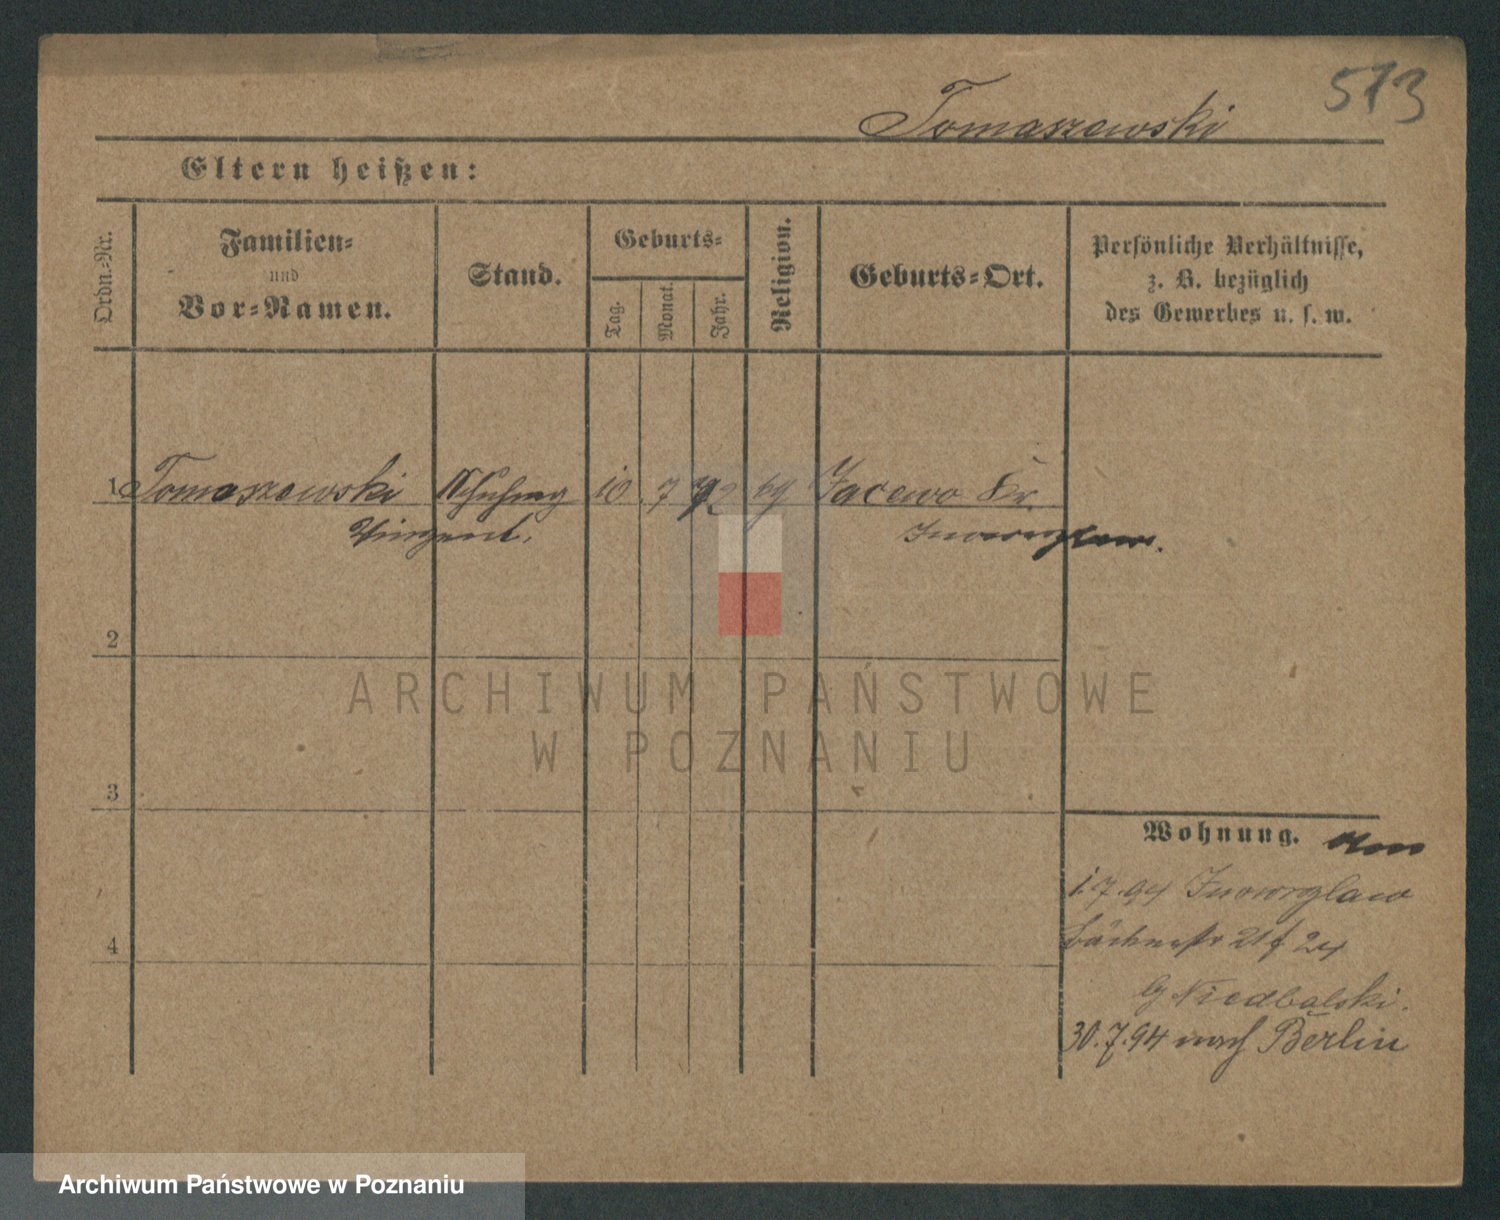 573
Tomaszewski
Eltern heißen:
Ordn.-Nr.
Familien-
und
Vor-Namen.
Stand.
Geburts-
Tag.
Monat.
Jahr.
Religion.
Geburts-Ort.
Persönliche Verhältnisse,
z. B. bezüglich
des Gewerbes u. s. w.
1 Tomaszewski 10 7 72 Jacewo Kr.
Vinzent. Inowrazlaw.
2
ARCHIWUM PAŃSTWOWE
W POZNANIU
3
Wohnung.
1.7.94 Inowrazlaw
21 f. 24
Niedbalski.
4
30.7.94 nach Berlin
Archiwum Państwowe w Poznaniu